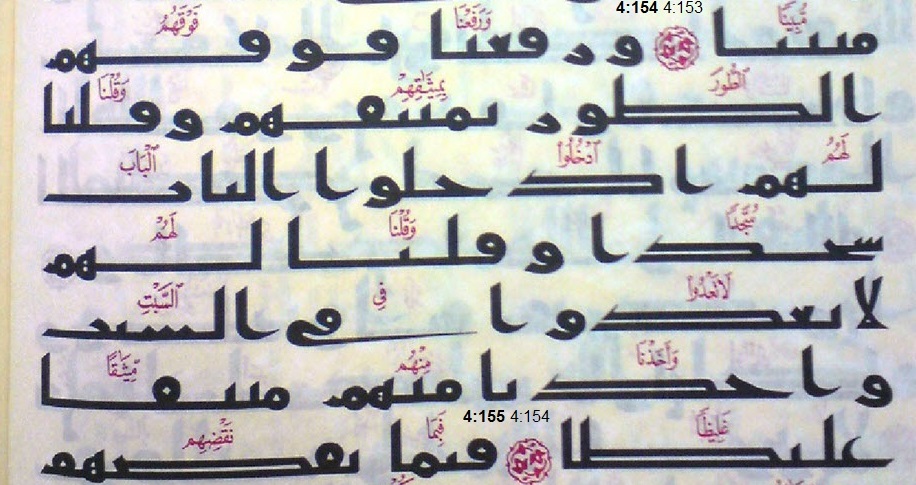 4:154 4:153
مُّبِينًا وَرَفَعْنَا فَوْقَهُمُ
مبينا ورفعنا فوقهم
ٱلطُّورَ بِمِيثَٰقِهِمْ وَقُلْنَا
الطور بميثقهم وقلنا
لَهُمُ ٱدْخُلُوا۟ ٱلْبَابَ
لهم ادخلوا الباب
سُجَّدًا وَقُلْنَا لَهُمْ
سجدا وقلنا لهم
لَا تَعْدُوا۟ فِى ٱلسَّبْتِ
لا تعدوا فى السبت
وَأَخَذْنَا مِنْهُم مِّيثَٰقًا
واخذنا منهم ميثقا
4:155 4:154
غَلِيظًا فَبِمَا نَقْضِهِم
غليظا فبما نقضهم